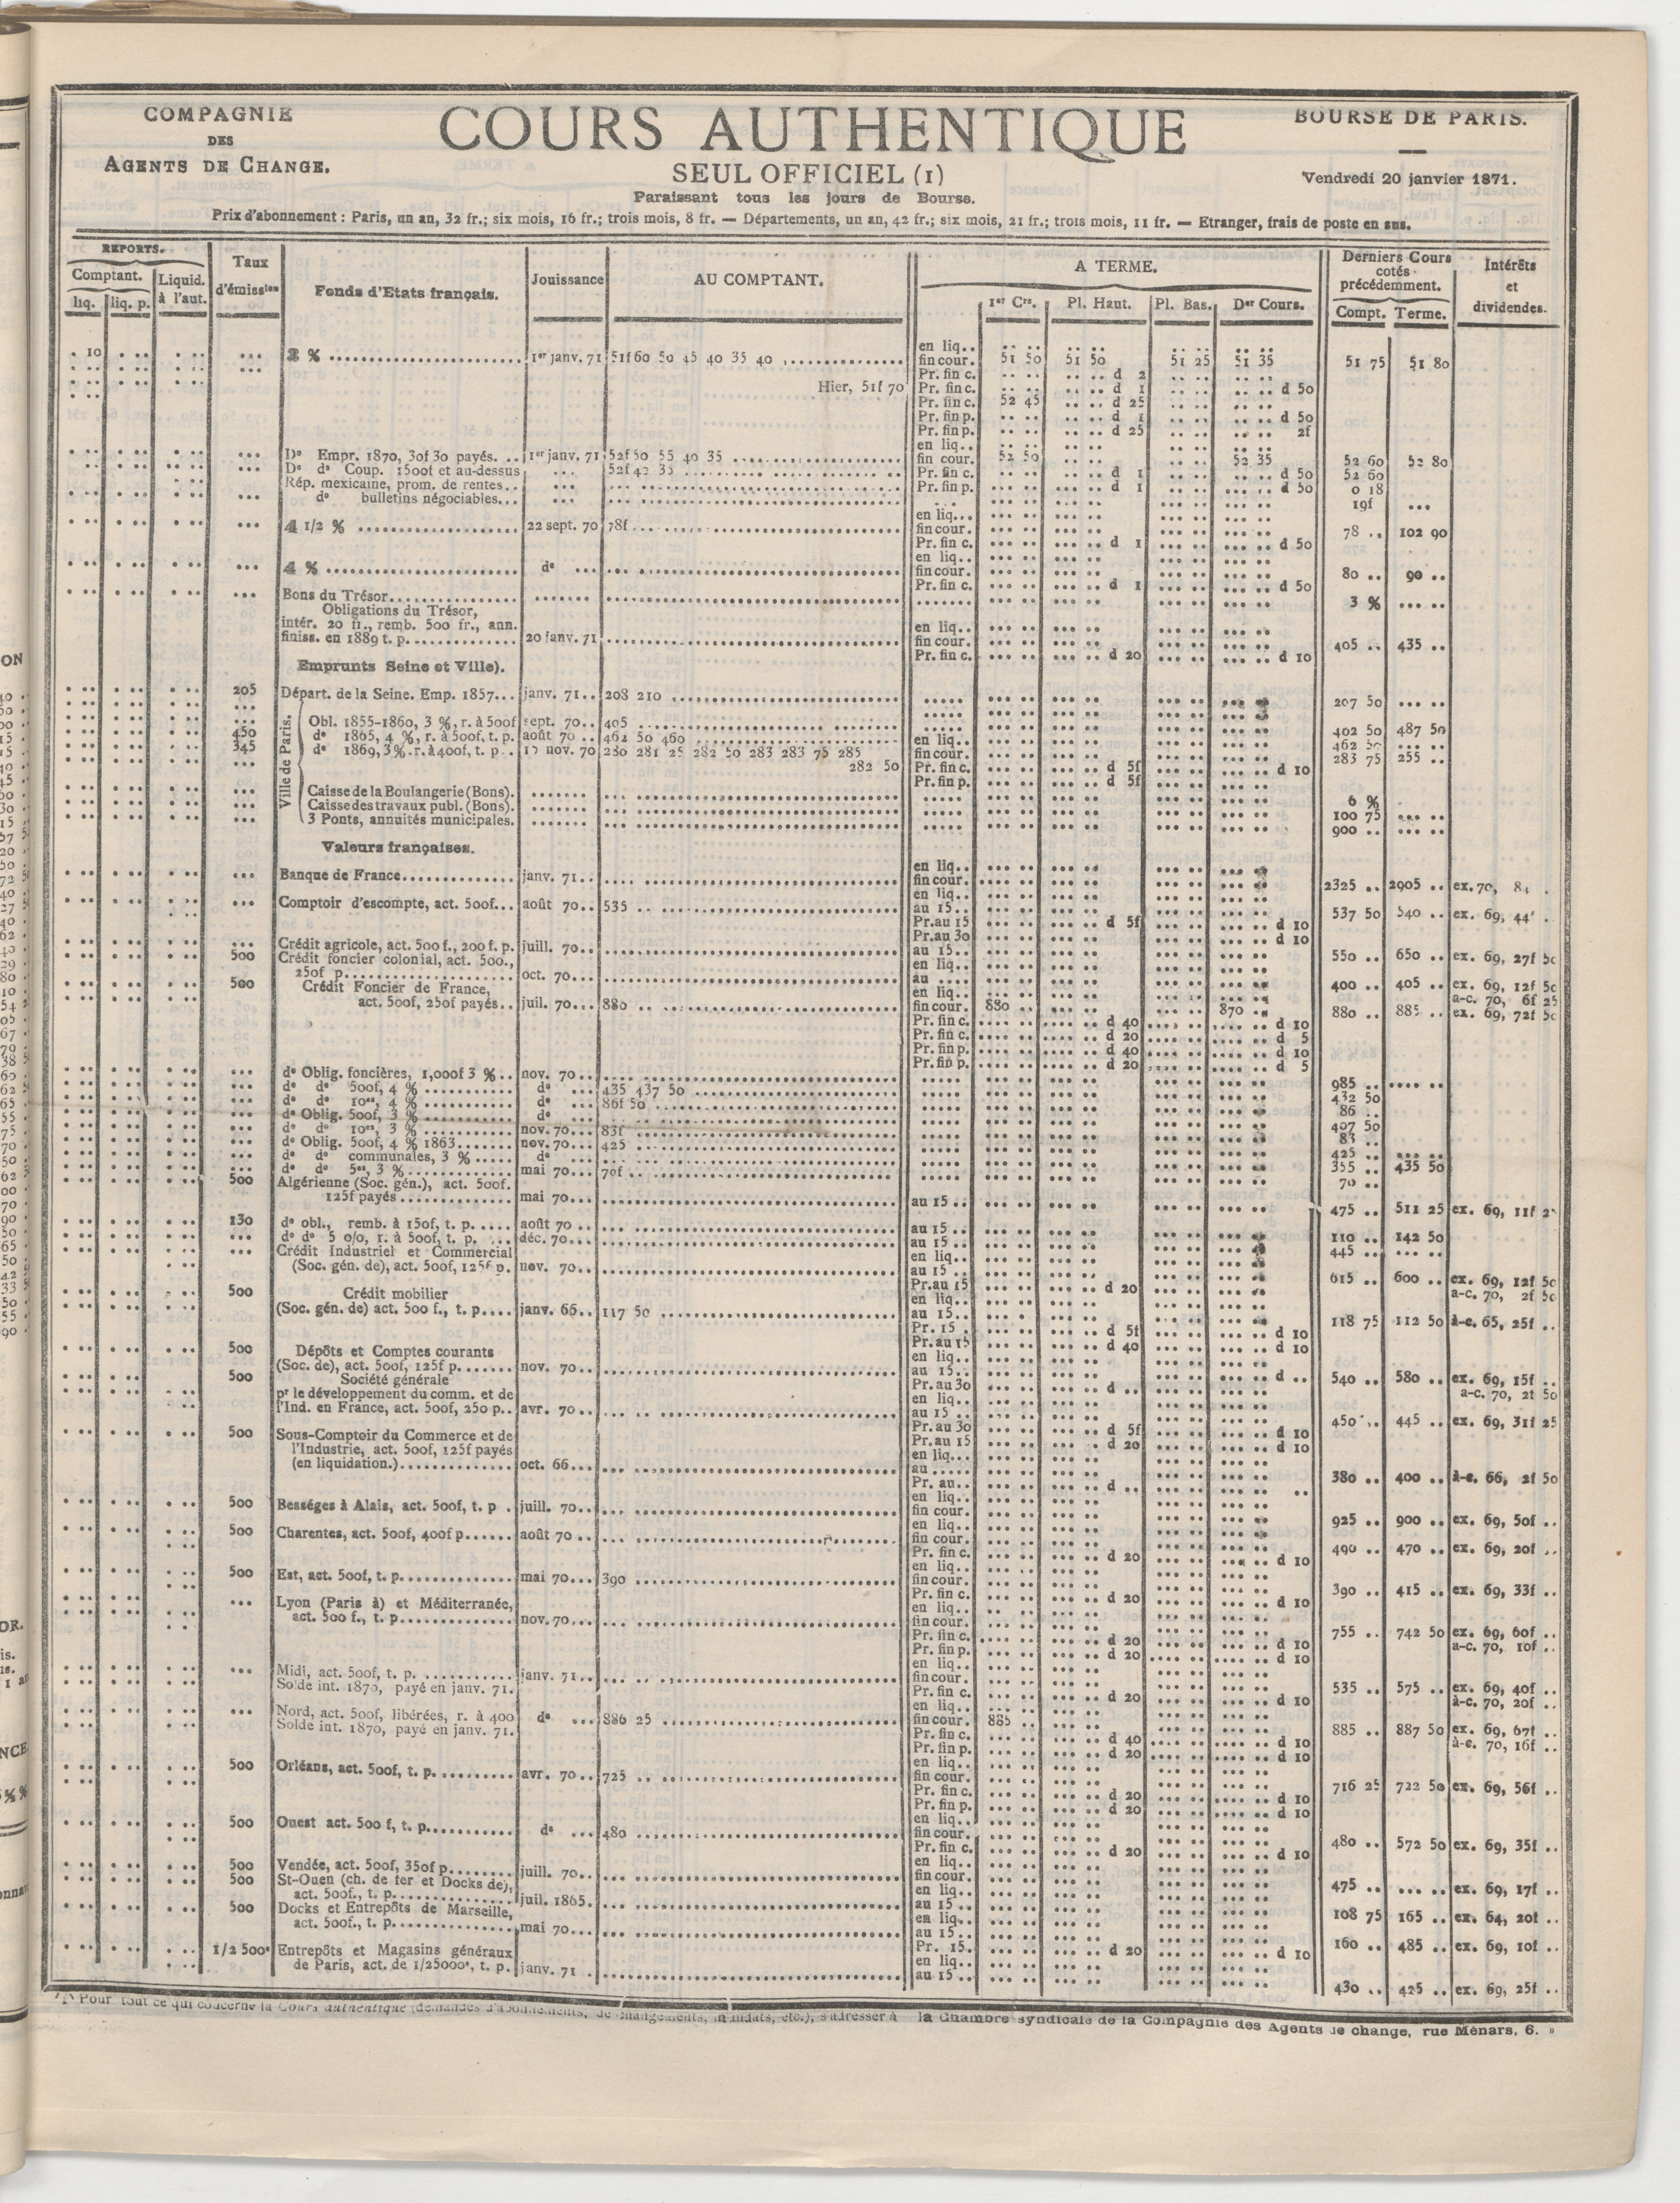 COMPAGNIE
DES
AGENTS DE CHANGE.
COURS AUTHENTIQUE
SEUL OFFICIEL (1)
Paraissant tous les jours de Bourse.
BOURSE DE PARIS.
Vendredi 20 janvier 1871.
Prix d'abonnement : Paris, un an, 32 fr.; six mois, 16 fr.; trois mois, 8 fr. — Départements, un an, 42 fr.; six mois, 21 fr.; trois mois, 11 fr. — Etranger, frais de poste en sus.
REPORTS. Taux d'émission Fonds d'Etats français. Jouissance AU COMPTANT. A TERME. Derniers Cours cotés précédemment. Intérêts et dividendes.
Comptant. Liquid. à l'aut.
liq. liq. p. 1er Crs. Pl. Haut. Pl. Bas. Der Cours. Compt. Terme.
en liq..
. 10 3 % 1er janv. 71 51f60 50 45 40 35 40 fin cour. 51 50 51 50 51 25 51 35 51 75 51 80
Pr. fin c. d 2
Hier, 51f 70 Pr. fin c. d 1 d 50
Pr. fin c. 52 45 d 25
Pr. fin p. d 1 d 50
Pr. fin p. d 25 2f
en liq..
Do Empr. 1870, 30f 30 payés. 1er janv. 71 52f50 55 40 35 fin cour. 52 50 52 35 52 60 52 80
Do do Coup. 1500f et au-dessus 52f 42 35 Pr. fin c. d 1 d 50 52 60
Rép. mexicaine, prom. de rentes.. Pr. fin p. d 1 d 50 0 18
do bulletins négociables... 19f
en liq...
4 1/2 % 22 sept. 70 78f fin cour. 78 .. 102 90
Pr. fin c. d 1 d 50
en liq..
4 % do fin cour. 80 .. 90 ..
Pr. fin c. d 1 d 50
Bons du Trésor 3 %
Obligations du Trésor,
intér. 20 fr., remb. 500 fr., ann. en liq..
finiss. en 1889 t. p. 20 janv. 71 fin cour. 405 .. 435 ..
Pr. fin c. d 20 d 10
Emprunts Seine et Ville).
205 Départ. de la Seine. Emp. 1857... janv. 71.. 208 210 207 50
Ville de Paris.
Obl. 1855-1860, 3 %, r. à 500f sept. 70.. 405 402 50 487 50
450 do 1865, 4 %, r. à 500f, t. p. août 70 .. 462 50 460 en liq..
345 do 1869, 3 % r. à 400f, t. p. 15 nov. 70 280 281 25 282 50 283 283 75 285 fin cour. 283 75 255 ..
282 50 Pr. fin c. d 5f d 10
Pr. fin p. d 5f
Caisse de la Boulangerie (Bons). 6 %
Caisse des travaux publ. (Bons). 100 75
3 Ponts, annuités municipales. 900 ..
Valeurs françaises.
en liq..
Banque de France janv. 71.. fin cour. 2325 .. 2905 .. ex. 70,
en liq..
Comptoir d'escompte, act. 500f... août 70.. 535 .. au 15.. 537 50 540 .. ex. 69, 44f
Pr. au 15 d 5f d 10
Pr. au 30 d 10
Crédit agricole, act. 500 f., 200 f. p. juill. 70.. au 15.. 550 .. 650 .. ex. 69, 27f 50
500 Crédit foncier colonial, act. 500., en liq..
250f p. oct. 70... au ..... 400 .. 405 .. ex. 69, 12f 50
500 Crédit Foncier de France, en liq.. a-c. 70, 6f 25
act. 500f, 250f payés.. juil. 70... 880 .. fin cour. 880 .. 870 .. 880 .. 885 .. ex. 69, 72f 50
Pr. fin c. d 40 d 10
Pr. fin c. d 20 d 5
Pr. fin p. d 40 d 10
Pr. fin p. d 20 d 5
do Oblig. foncières, 1,000f 3 % .. nov. 70... 985 ..
do do 500f, 4 % do 435 437 50 432 50
do do 10es, 4 % do 86f 50 86 ..
do Oblig. 500f, 3 % do 407 50
do do 10es, 3 % nov. 70... 83f 83 ..
do Oblig. 500f, 4 % 1863 nov. 70... 425 425 ..
do do communales, 3 % do 355 .. 435 50
do do 5es, 3 % mai 70... 70f .. 70 ..
500 Algérienne (Soc. gén.), act. 500f.
125f payés mai 70... au 15 .. 475 .. 511 25 ex. 69, 11f
130 do obl., remb. à 150f, t. p. août 70 .. au 15 .. 110 .. 142 50
do do 5 o/o, r. à 500f, t. p. déc. 70... au 15 .. 445 ..
Crédit Industriel et Commercial en liq..
(Soc. gén. de), act. 500f, 125f p. nov. 70... au 15 .. 615 .. 600 .. ex. 69, 12f 50
Pr. au 15 d 20 a-c. 70, 2f 50
500 Crédit mobilier en liq..
(Soc. gén. de) act. 500 f., t. p. janv. 66.. 117 50 au 15.. 118 75 112 50 à-c. 65, 25f ..
Pr. 15 . d 5f d 10
Pr. au 15 d 40 d 10
500 Dépôts et Comptes courants en liq..
(Soc. de), act. 500f, 125f p. nov. 70... au 15.. 540 .. 580 .. ex. 69, 15f ..
500 Société générale Pr. au 30 d .. d .. a-c. 70, 2f 50
pr le développement du comm. et de en liq..
l'Ind. en France, act. 500f, 250 p.. avr. 70... au 15 .. 450 .. 445 .. ex. 69, 31f 25
Pr. au 30 d 5f d 10
500 Sous-Comptoir du Commerce et de Pr. au 15 d 20 d 10
l'Industrie, act. 500f, 125f payés en liq...
(en liquidation.) oct. 66... au ..... 380 .. 400 .. à-c. 66, 2f 50
Pr. au.. d ..
en liq..
500 Bességes à Alais, act. 500f, t. p . juill. 70.. fin cour. 925 .. 900 .. ex. 69, 50f ..
en liq..
500 Charentes, act. 500f, 400f p. août 70 .. fin cour. 490 .. 470 .. ex. 69, 20f ..
Pr. fin c. d 20 d 10
en liq..
500 Est, act. 500f, t. p. mai 70... 390 fin cour. 390 .. 415 .. ex. 69, 33f ..
Pr. fin c. d 20 d 10
Lyon (Paris à) et Méditerranée, en liq..
act. 500 f., t. p. nov. 70... fin cour. 755 .. 742 50 ex. 69, 60f ..
Pr. fin c. d 20 d 10 a-c. 70, 10f ..
Pr. fin p. d 20 d 10
en liq..
Midi, act. 500f, t. p. janv. 71.. fin cour. 535 .. 575 .. ex. 69, 40f ..
Solde int. 1870, payé en janv. 71. Pr. fin c. d 20 d 10 à-c. 70, 20f ..
en liq..
Nord, act. 500f, libérées, r. à 400 do 886 25 fin cour. 885 .. 885 .. 887 50 ex. 69, 67f ..
Solde int. 1870, payé en janv. 71. Pr. fin c. d 40 d 10 à-c. 70, 16f ..
Pr. fin p. d 20 d 10
en liq..
500 Orléans, act. 500f, t. p. avr. 70.. 725 .. fin cour. 716 25 722 50 ex. 69, 56f ..
Pr. fin c. d 20 d 10
Pr. fin p. d 20 d 10
en liq..
500 Ouest act. 500 f, t. p. do 480 fin cour. 480 .. 572 50 ex. 69, 35f ..
Pr. fin c. d 20 d 10
en liq..
500 Vendée, act. 500f, 350f p. juill. 70.. fin cour. 475 .. ex. 69, 17f ..
500 St-Ouen (ch. de fer et Docks de), en liq..
act. 500f., t. p. juil. 1865. au 15 .. 108 75 165 .. ex. 64, 20f ..
500 Docks et Entrepôts de Marseille, en liq..
act. 500f., t. p. mai 70... au 15.. 160 .. 485 .. ex. 69, 10f ..
Pr. 15. d 20 d 10
1/2 500e Entrepôts et Magasins généraux en liq..
de Paris, act. de 1/25000e, t. p. janv. 71 . au 15 .. 430 .. 425 .. ex. 69, 25f ..
Pour tout ce qui concerne la Cours authentique (demandes d'abonnements, de changements, mandats, etc.), s'adresser à la Chambre syndicale de la Compagnie des Agents de change, rue Ménars, 6. »